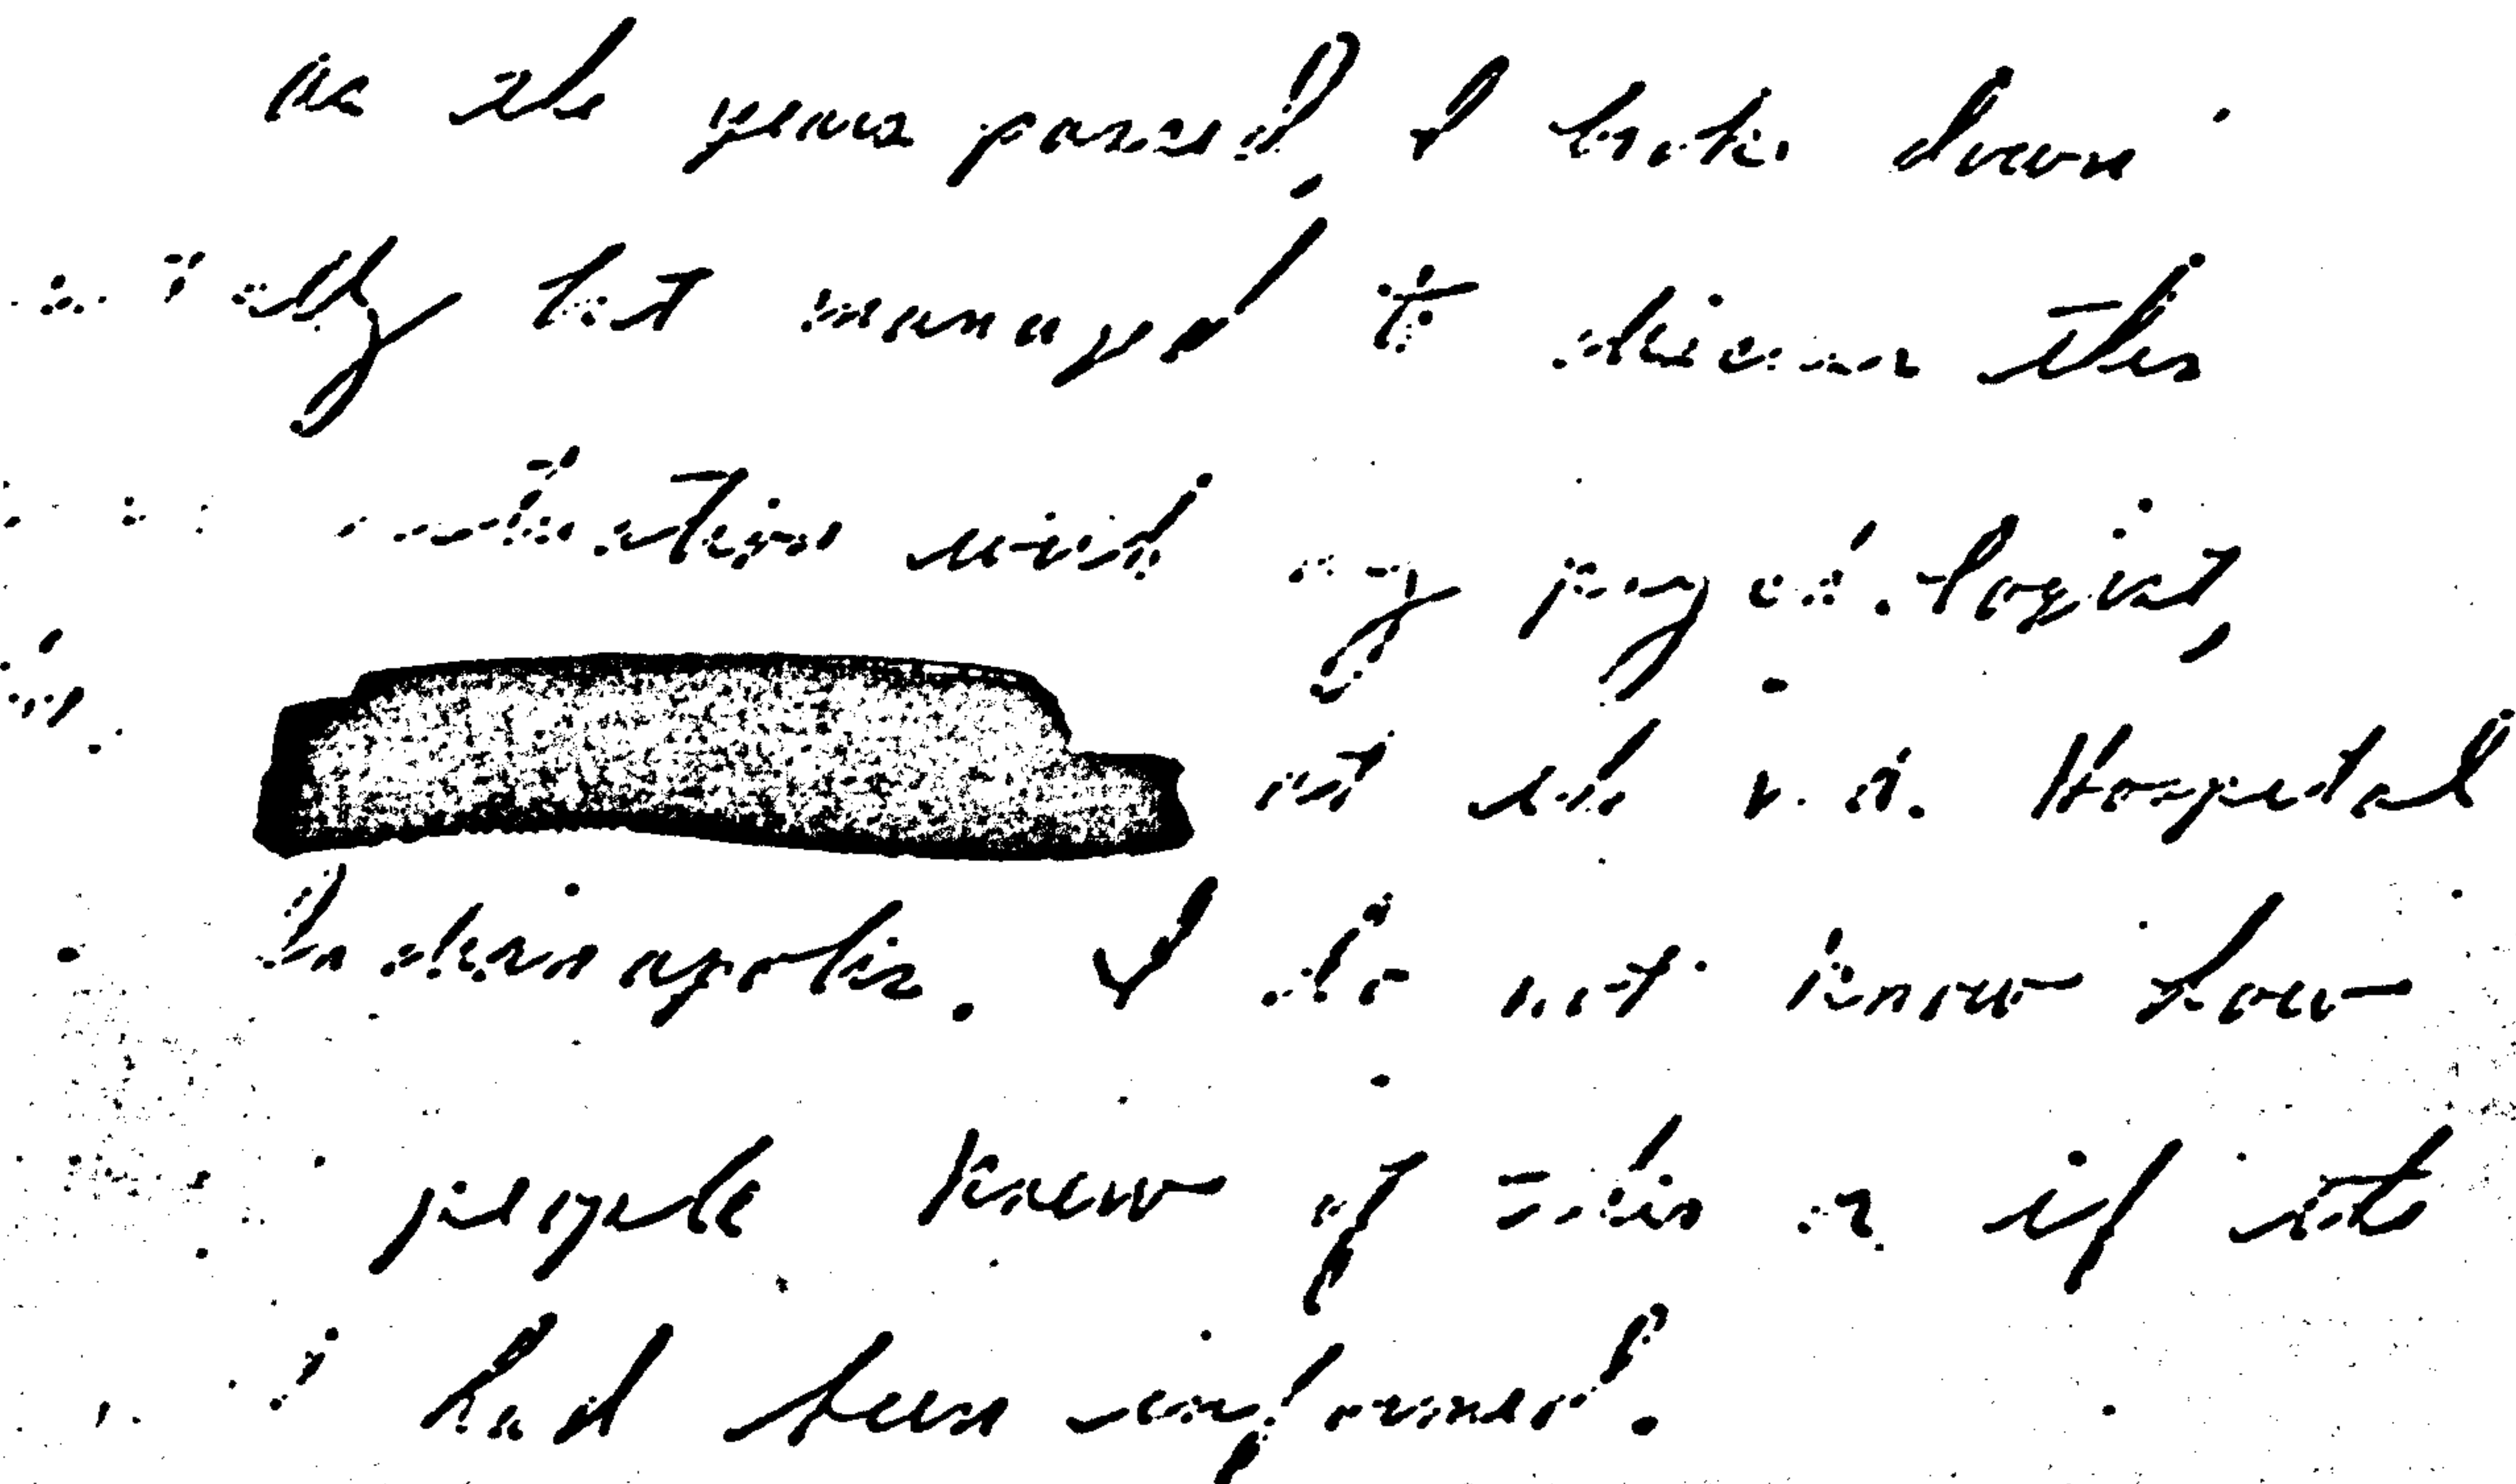 As the years passed, I broke down
mentally but managed to discuss this
situation with my psychologist,
at the V.A. Hospital
In Indianapolis. I do not know how
people knew of this or if it
had been informed.